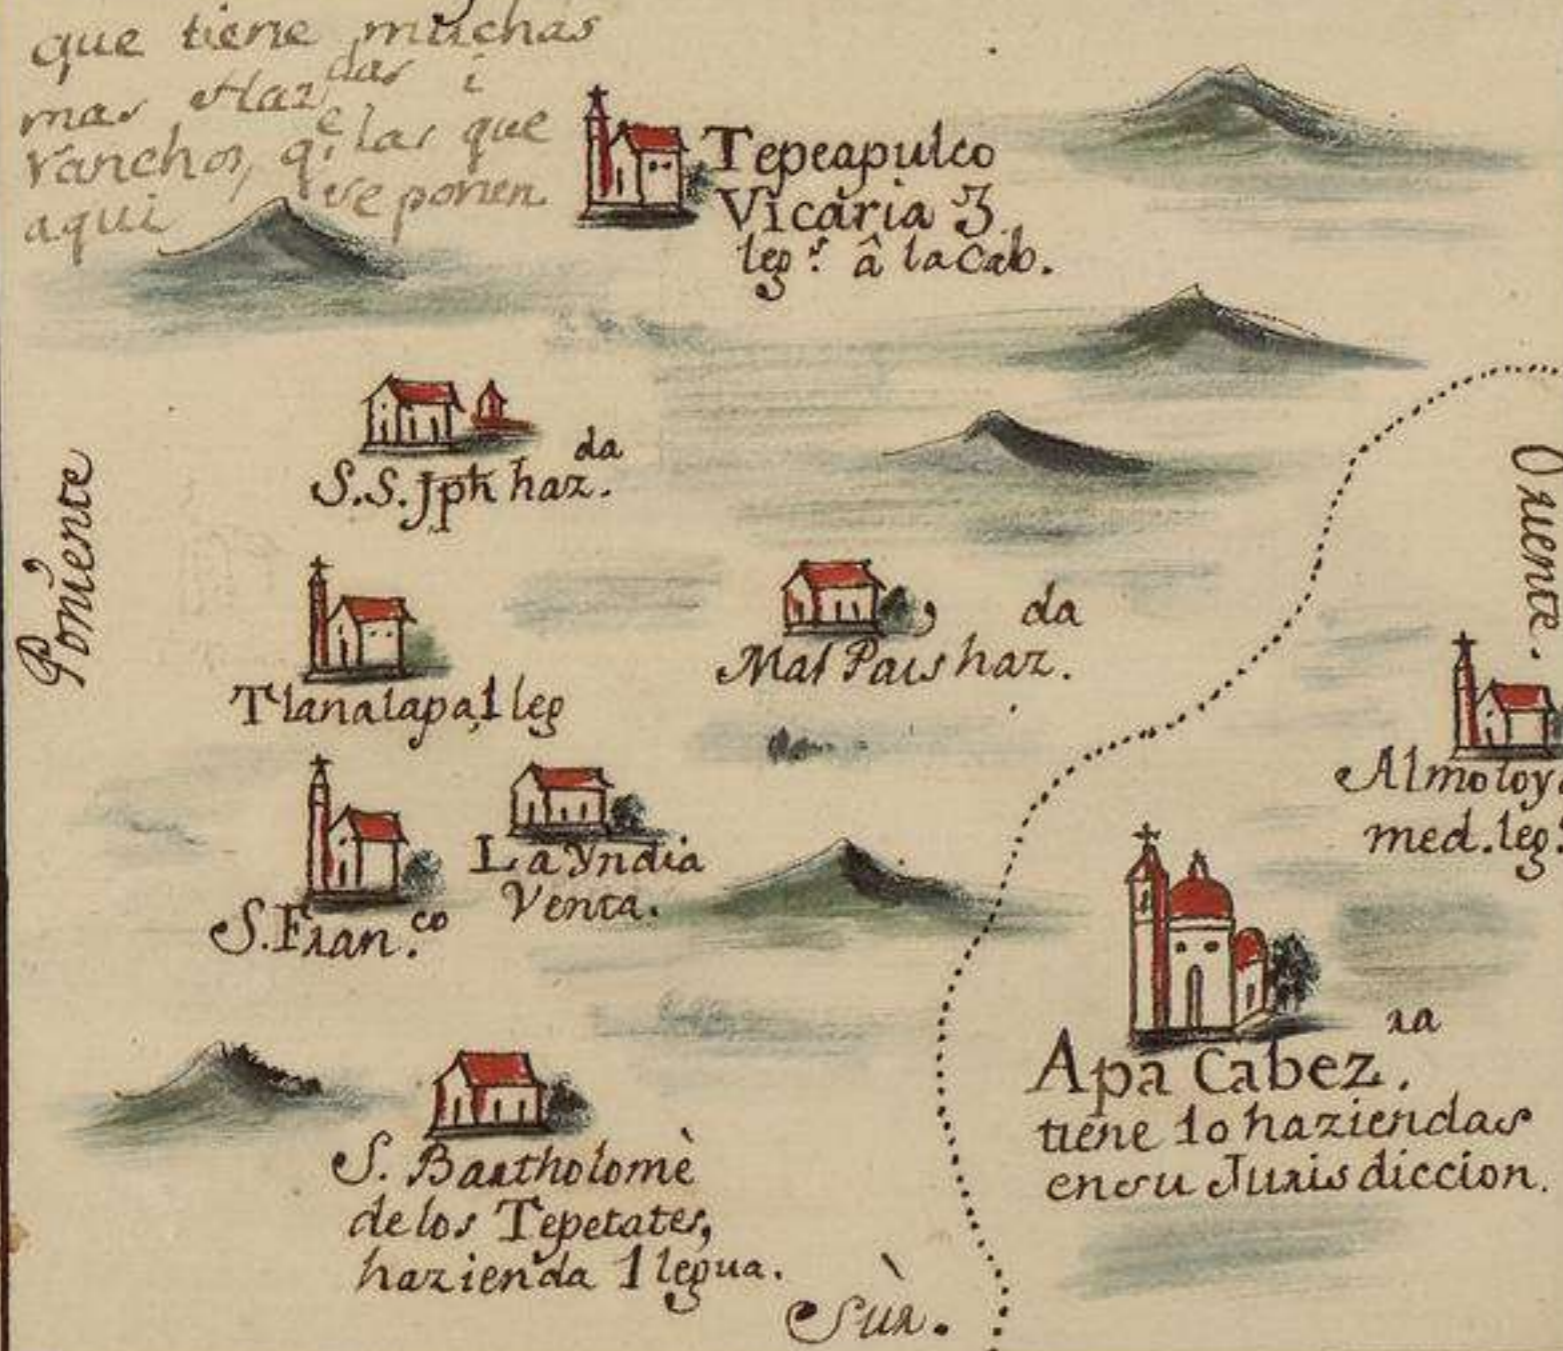 que tiene muchas
mas Haz.das i
ranchos, q.e las que
aqui se ponen
Tepeapulco
Vicaria 3
leg.s â la Cab.
S.S. Jph haz.da
Poniente
Oriente.
Tlanalapa, 1 leg
Mal Pais haz.da
Almoloya
med. leg.
La Yndia
Venta.
S. Fran.co
Apa Cabez.ra
tiene 10 haziendas
en su Jurisdiccion.
S. Bartholomè
de los Tepetates,
hazienda 1 legua.
Sur.